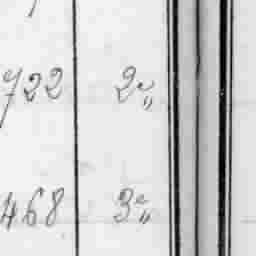 722 2e„
468 3e„